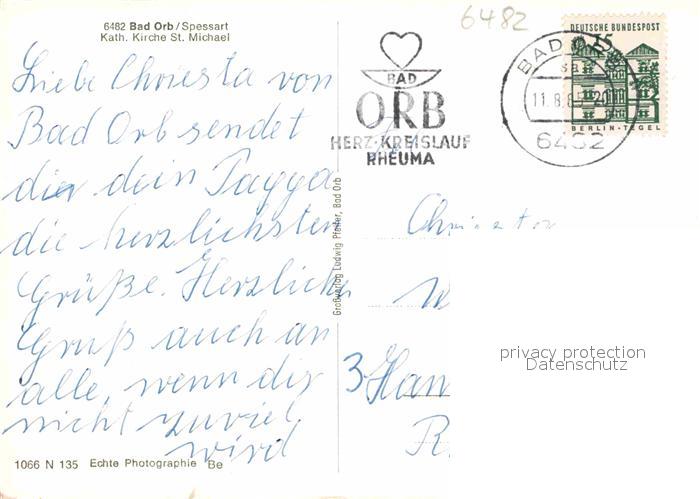 6482 Bad Orb/Spessart
Kath. Kirche St. Michael
6482
Liebe Chriesta von
Bad Orb sendet
dir dein Pagga
die herzlichsten
Grüße. Herzlichn
Gruß auch an
alle, wenn dir
nicht zuviel
wird
1066 N 135 Echte Photographie Be
Großverlag Ludwig Pfeifer, Bad Orb
BAD
ORB
HERZ·KREISLAUF
RHEUMA
BAD ORB
11.8.65-20
6482
DEUTSCHE BUNDESPOST
15
BERLIN-TEGEL
W
3 Han
R
privacy protection
Datenschutz